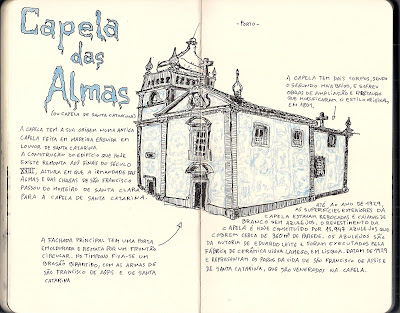 Capela
das
Almas
(OU CAPELA DE SANTA CATARINA)
A CAPELA TEM A SUA ORIGEM NUMA ANTIGA
CAPELA FEITA EM MADEIRA ERGUIDA EM
LOUVOR DE SANTA CATARINA.
A CONSTRUÇÃO DO EDIFÍCIO QUE HOJE
EXISTE REMONTA AOS FINAIS DO SÉCULO
XVIII, ALTURA EM QUE A IRMANDADE DAS
ALMAS E DAS CHAGAS DE SÃO FRANCISCO
PASSOU DO MOSTEIRO DE SANTA CLARA
PARA A CAPELA DE SANTA CATARINA.
A FACHADA PRINCIPAL TEM UMA PORTA
EMOLDURADA E REMATA POR UM FRONTÃO
CIRCULAR. NO TÍMPANO FIXA-SE UM
BRASÃO BIPARTIDO, COM AS ARMAS DE
SÃO FRANCISCO DE ASSIS E DE SANTA
CATARINA
- PORTO -
A CAPELA TEM DOIS CORPOS, SENDO
O SEGUNDO MAIS BAIXO, E SOFREU
OBRAS DE AMPLIAÇÃO E
QUE MODIFICARAM O ESTILO ORIGINAL,
EM 1801.
ATÉ AO ANO DE 1929,
AS SUPERFÍCIES EXTERIORES DA
CAPELA ESTAVAM REBOCADAS E CAIADAS DE
BRANCO SEM AZULEJOS. O REVESTIMENTO DA
CAPELA É HOJE CONSTITUÍDO POR 15.947 AZULEJOS QUE
COBREM CERCA DE 360M² DE PAREDE. OS AZULEJOS SÃO
DA AUTORIA DE EDUARDO LEITE E FORAM EXECUTADOS PELA
FÁBRICA DE CERÂMICA VIÚVA LAMEGO, EM LISBOA. DATAM DE 1929
E REPRESENTAM OS PASSOS DA VIDA DE SÃO FRANCISCO DE ASSIS E
DE SANTA CATARINA, QUE SÃO VENERADOS NA CAPELA.